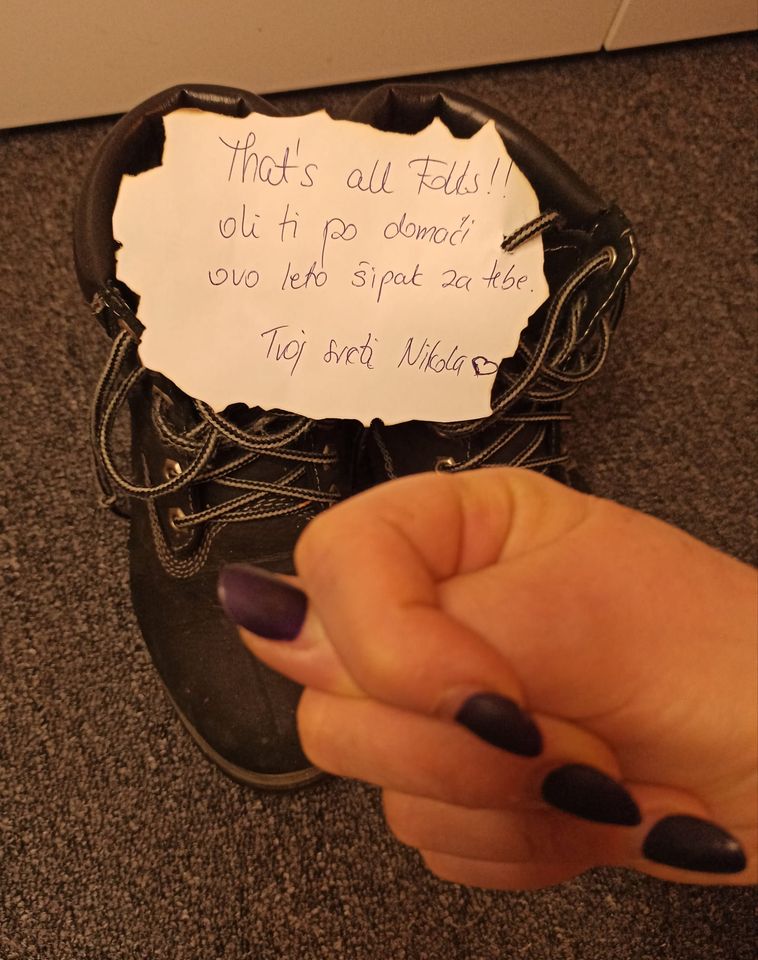 That's all Folks!!
oli ti po domaći
ovo leto šipak za tebe.
Tvoj sveti Nikola